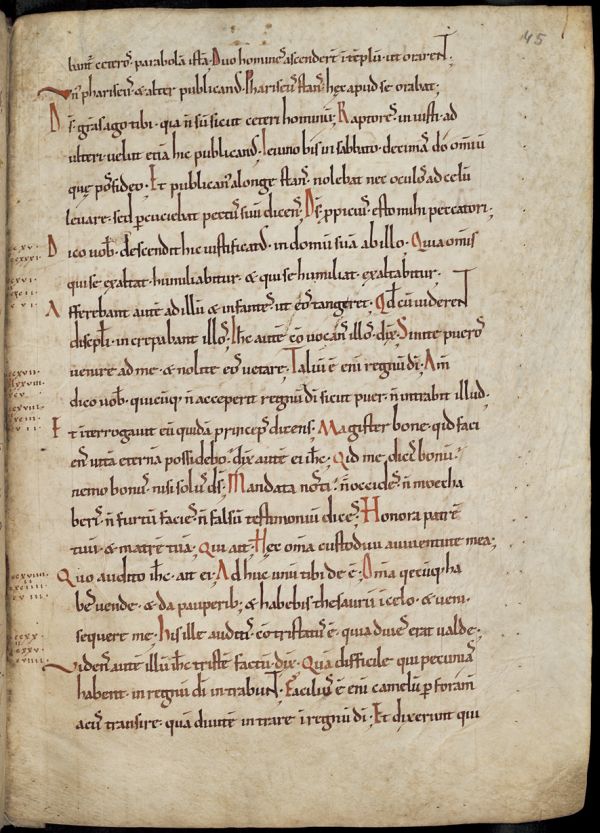 45
bant᷒ ceteros parabolā istā· Duo homines ascendert̄ ī tēplū ut orarent;
Vn᷒ phariseus & alter publican᷒· Phariseus stans hec apud se orabat;
Ds̄ grās ago tibi· quia n̄ sū sicut ceteri hominū; Raptores iniusti· ad
ulteri· uelut etiā hic publican᷒; Ieiuno bis in sabbato· decimas do omniū
que possideo· Et publicanus a longe stans· nolebat nec oculos ad celū
leuare· sed percuciebat pectus suū dicens; Ds̄ ppicius esto mihi peccatori;
Dico uob· descendit hic iustificat᷒· in domū suā ab illo· Quia om̄is
qui se exaltat humiliabitur· & qui se humiliat· exaltabitur·
Afferebant autē ad illū & infantes· ut eos tangeret· Qd̄ cū uiderent
discipli· increpabant illos; Ih̄c autē cōuocans illos· dix̄· Sinite pueros
uenire ad me· & nolite eos uetare· Taliū ē enī regnū dī; Am̄
dico uob· quicūq; n̄ acceperit regnū dī sicut puer· n̄ intrabit illud·
Et īterrogauit eū quidā princeps dicens; Magister bone· qid faci
ens uitā eterna possidebo; dix̄ autē ei ih̄c· Qid me dicis bonū·
nemo bonus· nisi solus ds̄; Mandata nosti· n̄ occides· n̄ moecha
beris· n̄ furtū facies· n̄ falsū testimoniū dices; Honora patrē
tuū· & matrē tuā; Qui ait; Hec om̄a custodiui a iuuentute mea;
Quo audito ih̄c· ait ei; Adhuc unū tibi de ē; Om̄a qecūq; ha
bes uende· & da pauperib; & habebis thesaurū ī celo· & ueni·
sequere me; His ille auditis cōtristatus ē· quia diues erat ualde;
Videns autē illū ih̄c tristē factū· dix̄· Quā difficile qui pecunias
habent· in regnū dī intrabunt; Facilius ē enī camelū p foram̄
acus transire· quā diuitē intrare ī regnū dī; Et dixerunt qui